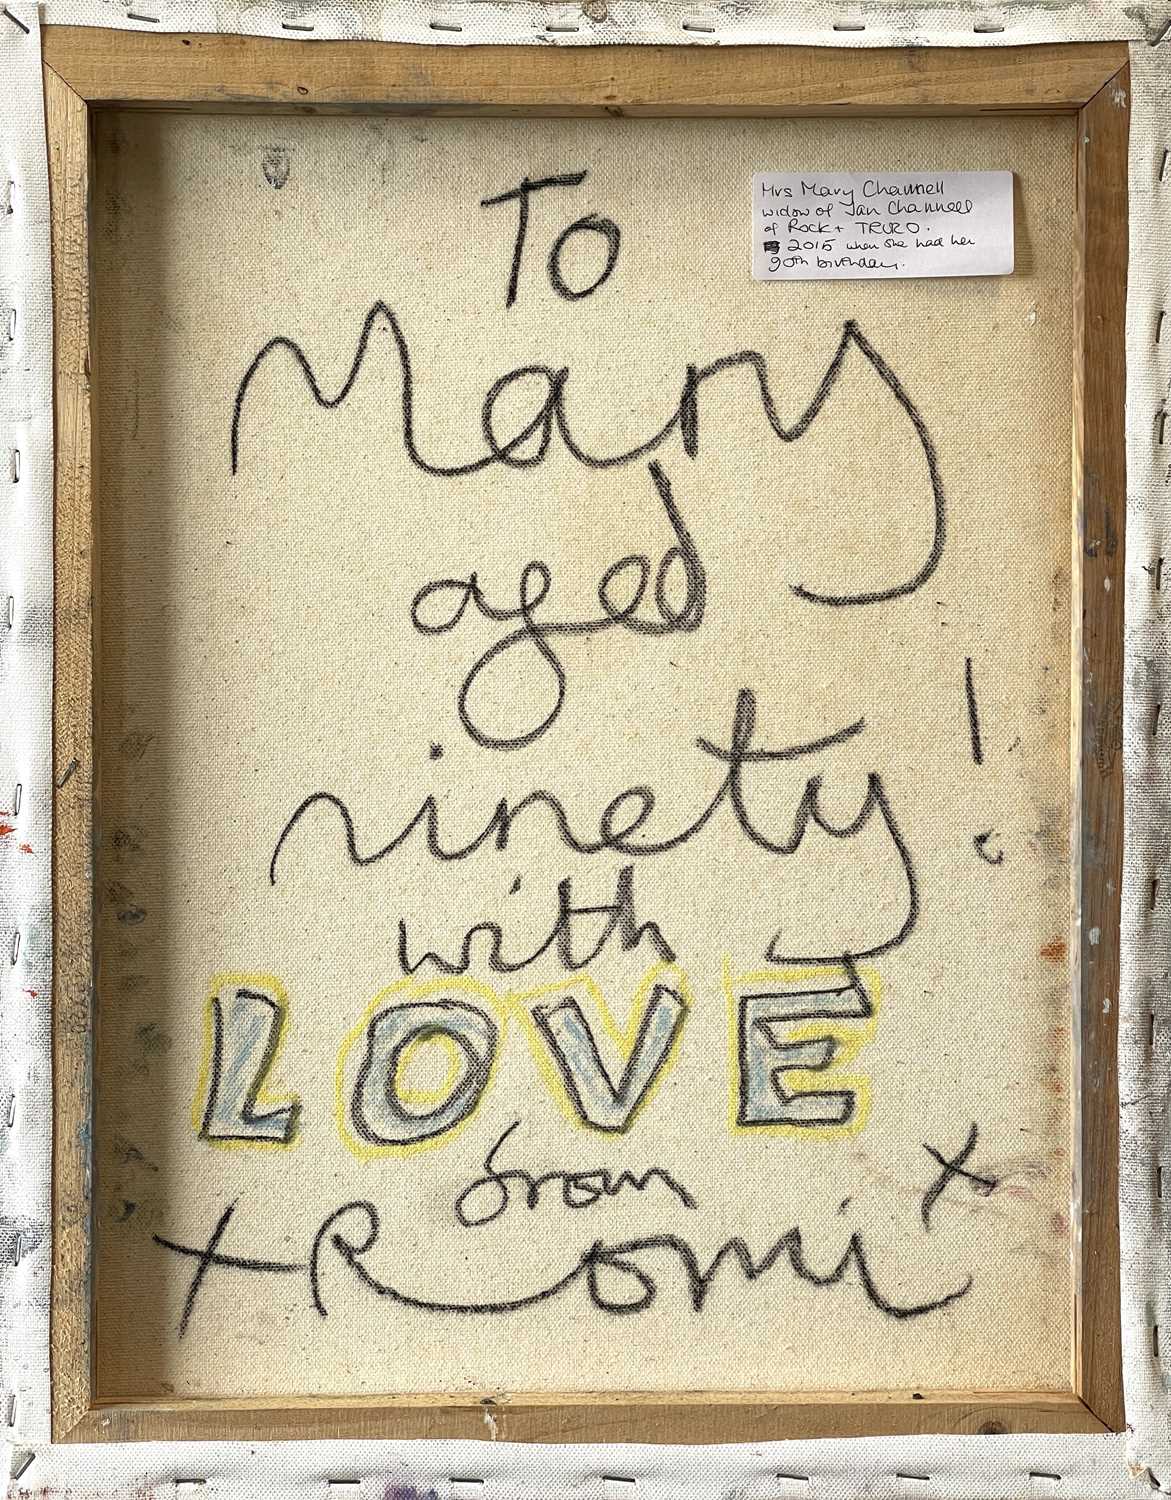 To
Mary
aged
ninety!
with
LOVE
from
x Romi x
Mrs Mary Channell
widow of Ian Channell
of Rock + TRURO.
2015 when she had her
90th birthday.